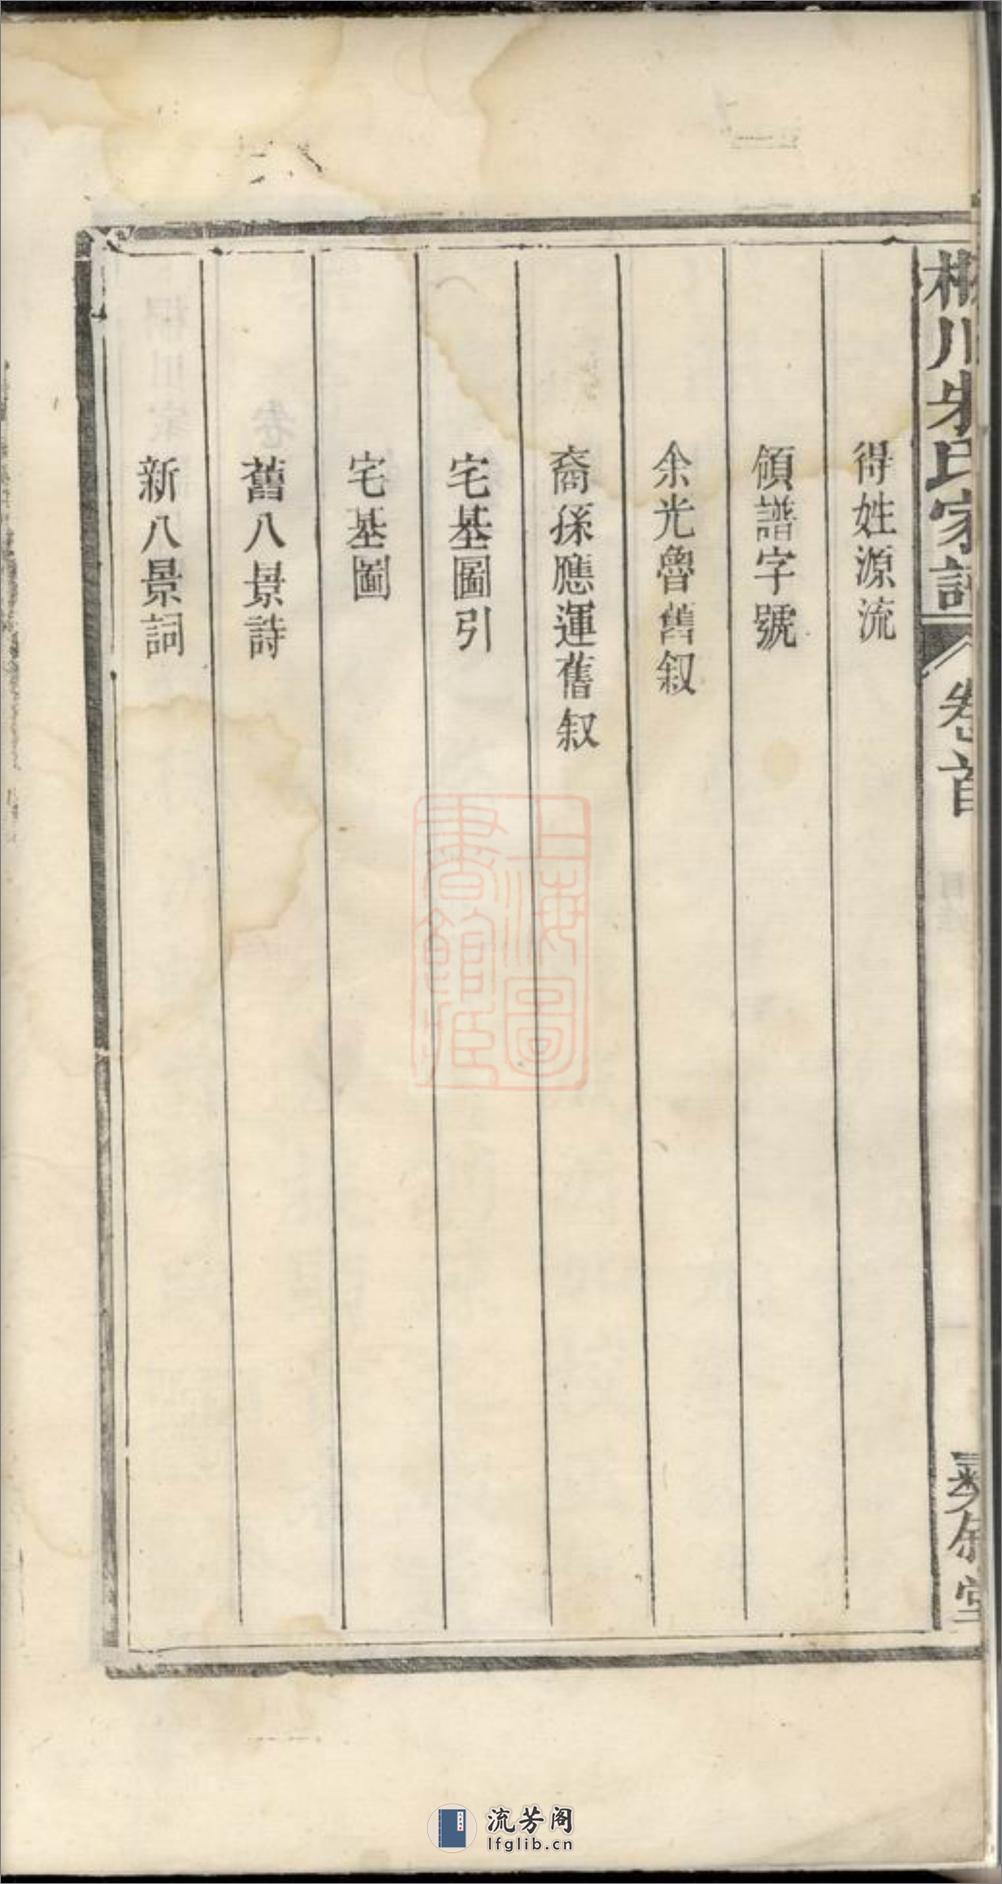 桐川朱氏家譜
卷首
得姓源流
領譜字號
余光魯舊叙
裔孫應運舊叙
宅基圖引
宅基圖
舊八景詩
新八景詞
上海圖書館藏
流芳阁
lfglib.cn